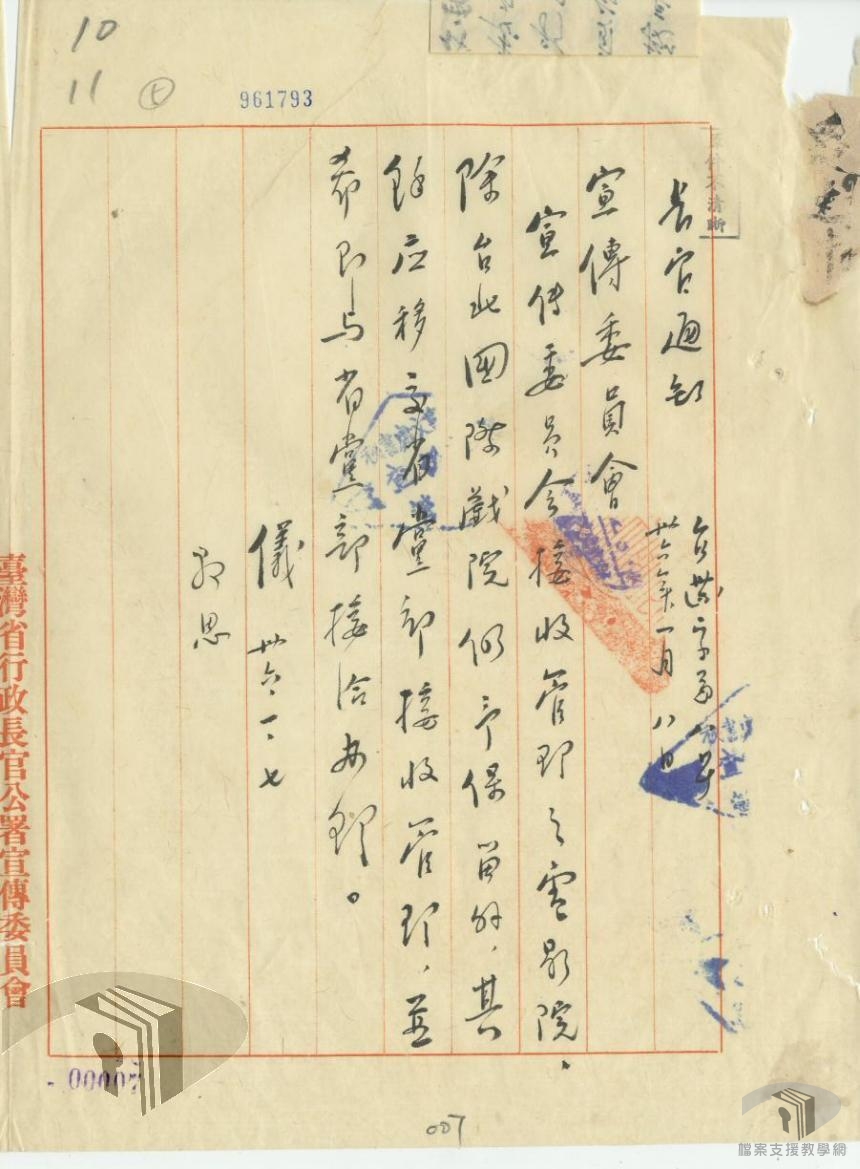 10
11
961793
長官通知
卅六年一月八日
宣傳委員會
宣傳委員会接收管理之電影院、
除台北國際戲院仍予保留外、其
餘应移交省黨部接收管理、並
希即与省黨部接洽办理。
儀 卅六、一、七
臺灣省行政長官公署宣傳委員會
-00007
007
檔案支援教學網